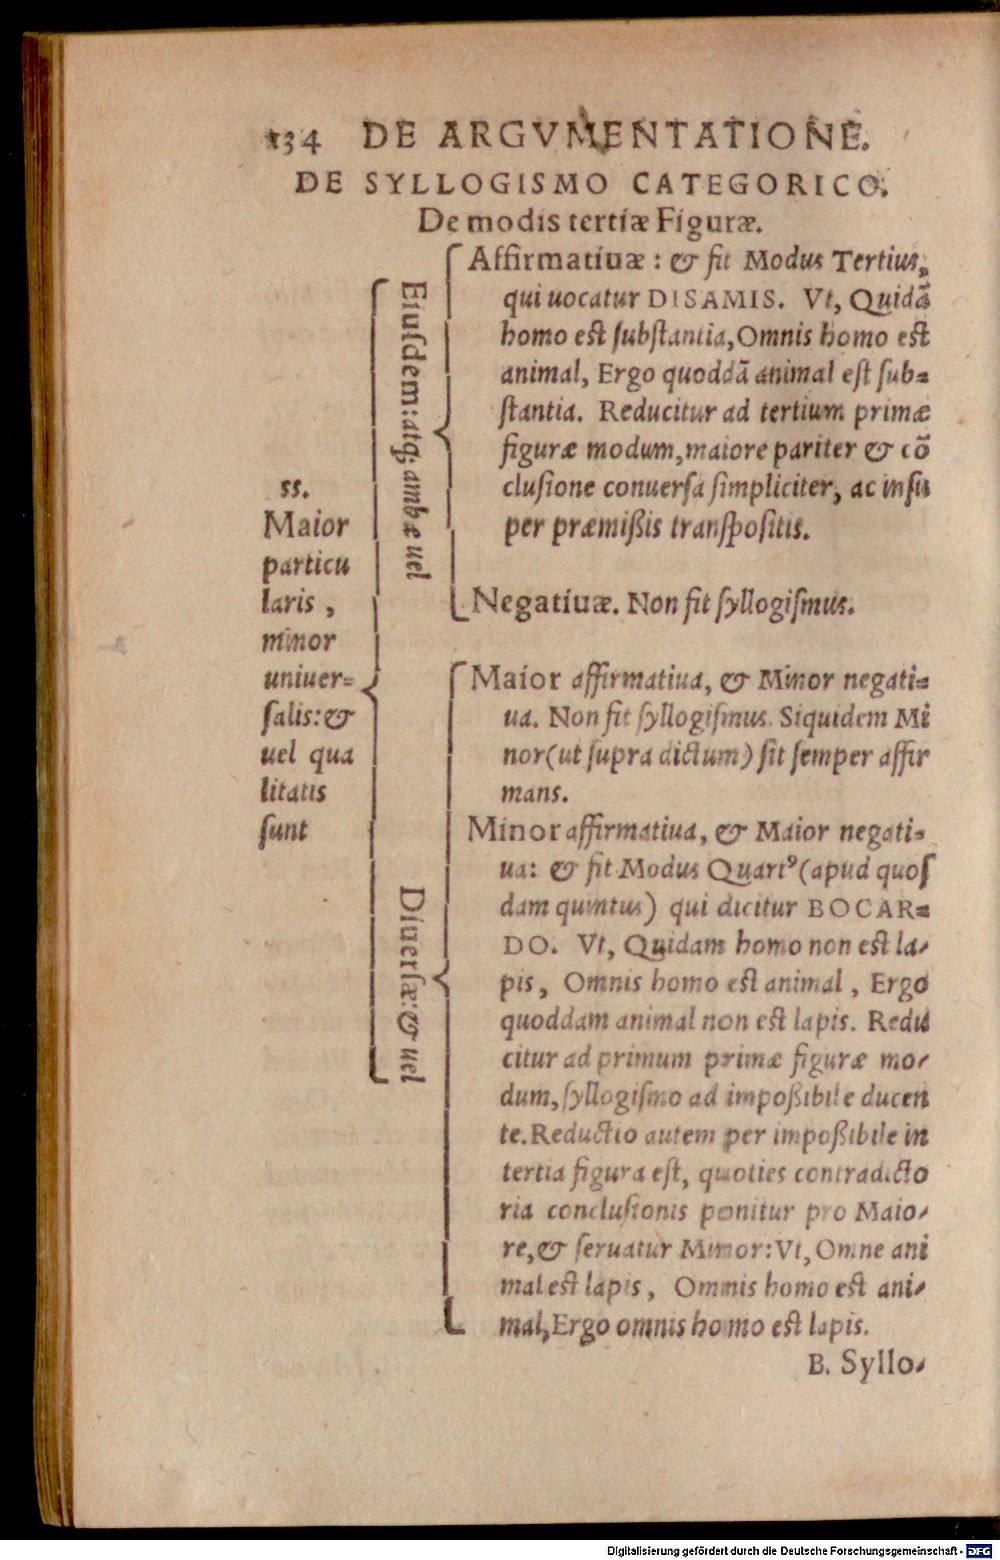 134 DE ARGVMENTATIONE.
DE SYLLOGISMO CATEGORICO.
De modis tertiæ Figuræ.
ss.
Maior
particu
laris,
minor
uniuer=
salis: &
uel qua
litatis
sunt
Eiusdem: atq; ambæ uel
Affirmatiuæ: & fit Modus Tertius,
qui uocatur DISAMIS. Vt, Quidā
homo est substantia, Omnis homo est
animal, Ergo quoddā animal est sub=
stantia. Reducitur ad tertium primæ
figuræ modum, maiore pariter & cō
clusione conuersa simpliciter, ac insu
per præmißis transpositis.
Negatiuæ. Non fit syllogismus.
Diuersæ: & uel
Maior affirmatiua, & Minor negati=
ua. Non fit syllogismus. Siquidem Mi
nor (ut supra dictum) sit semper affir
mans.
Minor affirmatiua, & Maior negati=
ua: & fit Modus Quartꝰ (apud quos
dam quintus) qui dicitur BOCAR=
DO. Vt, Quidam homo non est la-
pis, Omnis homo est animal, Ergo
quoddam animal non est lapis. Redu
citur ad primum primæ figuræ mo-
dum, syllogismo ad impoßibile ducen
te. Reductio autem per impoßibile in
tertia figura est, quoties contradicto
ria conclusionis ponitur pro Maio-
re, & seruatur Minor: Vt, Omne ani
mal est lapis, Omnis homo est ani-
mal, Ergo omnis homo est lapis.
B. Syllo-
Digitalisierung gefördert durch die Deutsche Forschungsgemeinschaft - DFG